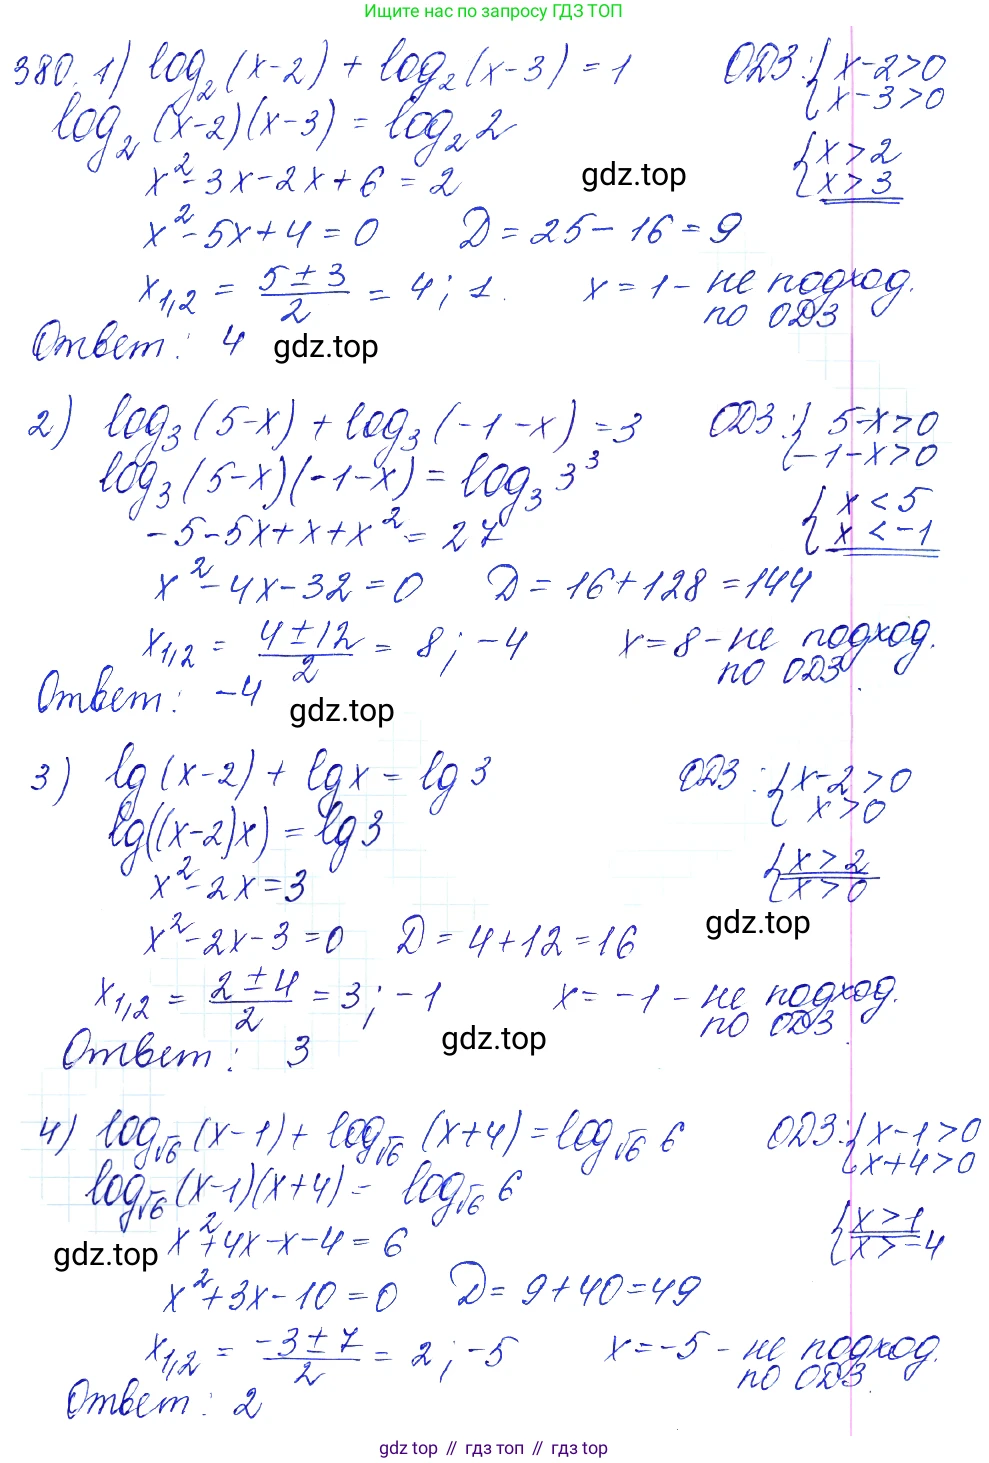 Ищите нас по запросу ГДЗ ТОП
380. 1) log₂(x-2) + log₂(x-3) = 1 ОДЗ: { x-2>0
{ x-3>0
log₂(x-2)(x-3) = log₂2
{ x>2
{ x>3
x²-3x-2x+6 = 2 gdz.top
x²-5x+4=0 D=25-16=9
x₁,₂ = (5±3)/2 = 4; 1. x=1 - не подход.
по ОДЗ
Ответ: 4 gdz.top
2) log₃(5-x) + log₃(-1-x) = 3 ОДЗ: { 5-x>0
{ -1-x>0
log₃(5-x)(-1-x) = log₃3³
{ x<5
{ x<-1
-5-5x+x+x² = 27
x²-4x-32=0 D=16+128=144
x₁,₂ = (4±12)/2 = 8; -4 x=8 - не подход.
по ОДЗ.
Ответ: -4 gdz.top
3) lg(x-2) + lgx = lg3 ОДЗ: { x-2>0
{ x>0
lg((x-2)x) = lg3
{ x>2
{ x>0
x²-2x=3
gdz.top
x²-2x-3=0 D=4+12=16
x₁,₂ = (2±4)/2 = 3; -1 x=-1 - не подход.
по ОДЗ.
Ответ: 3 gdz.top
4) log√6(x-1) + log√6(x+4) = log√6 6 ОДЗ: { x-1>0
{ x+4>0
log√6(x-1)(x+4) = log√6 6
{ x>1
{ x>-4
x²+4x-x-4=6
gdz.top
x²+3x-10=0 D=9+40=49
x₁,₂ = (-3±7)/2 = 2; -5 x=-5 - не подход.
по ОДЗ.
Ответ: 2
gdz top // гдз топ // gdz top